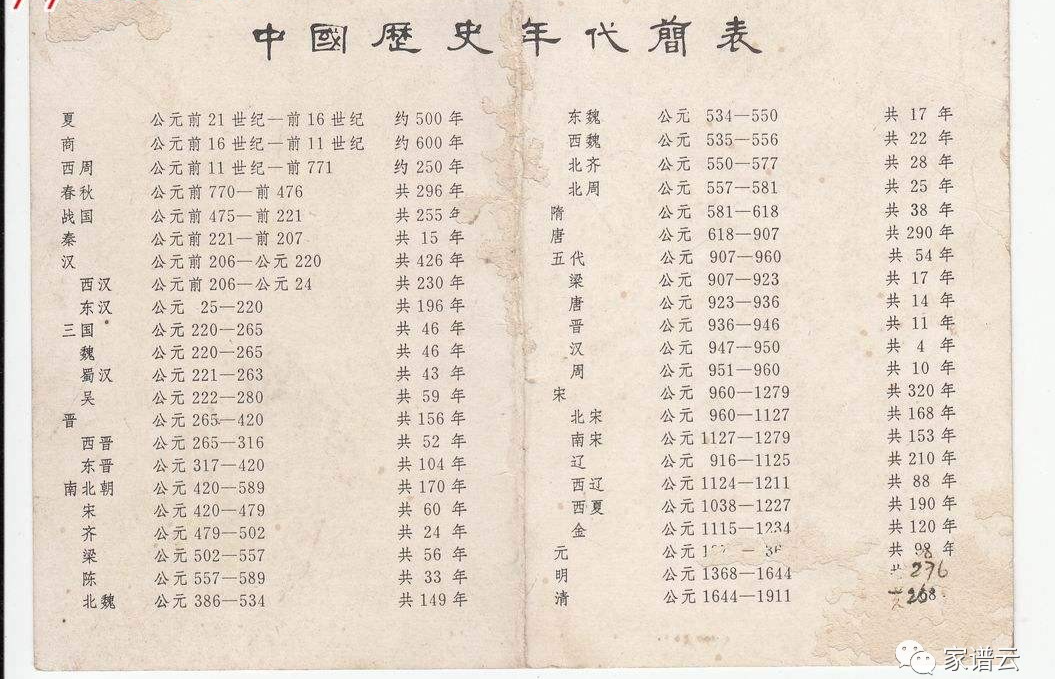 中國歷史年代簡表
夏 公元前21世纪—前16世纪 约500年
商 公元前16世纪—前11世纪 约600年
西周 公元前11世纪—前771 约250年
春秋 公元前770—前476 共296年
战国 公元前475—前221 共255年
秦 公元前221—前207 共 15 年
汉 公元前206—公元220 共426年
西汉 公元前206—公元24 共230年
东汉 公元 25—220 共196年
三国 公元220—265 共 46 年
魏 公元220—265 共 46 年
蜀汉 公元221—263 共 43 年
吴 公元222—280 共 59 年
晋 公元265—420 共156年
西晋 公元265—316 共 52 年
东晋 公元317—420 共104年
南北朝 公元420—589 共170年
宋 公元420—479 共 60 年
齐 公元479—502 共 24 年
梁 公元502—557 共 56 年
陈 公元557—589 共 33 年
北魏 公元386—534 共149年
东魏 公元 534—550 共 17 年
西魏 公元 535—556 共 22 年
北齐 公元 550—577 共 28 年
北周 公元 557—581 共 25 年
隋 公元 581—618 共 38 年
唐 公元 618—907 共290年
五代 公元 907—960 共 54年
梁 公元 907—923 共 17 年
唐 公元 923—936 共 14 年
晋 公元 936—946 共 11 年
汉 公元 947—950 共 4 年
周 公元 951—960 共 10 年
宋 公元 960—1279 共320年
北宋 公元 960—1127 共168年
南宋 公元1127—1279 共153年
辽 公元 916—1125 共210年
西辽 公元1124—1211 共 88 年
西夏 公元1038—1227 共190年
金 公元1115—1234 共120年
元 公元 共 98 年
明 公元1368—1644 共276
清 公元1644—1911 268
家谱云